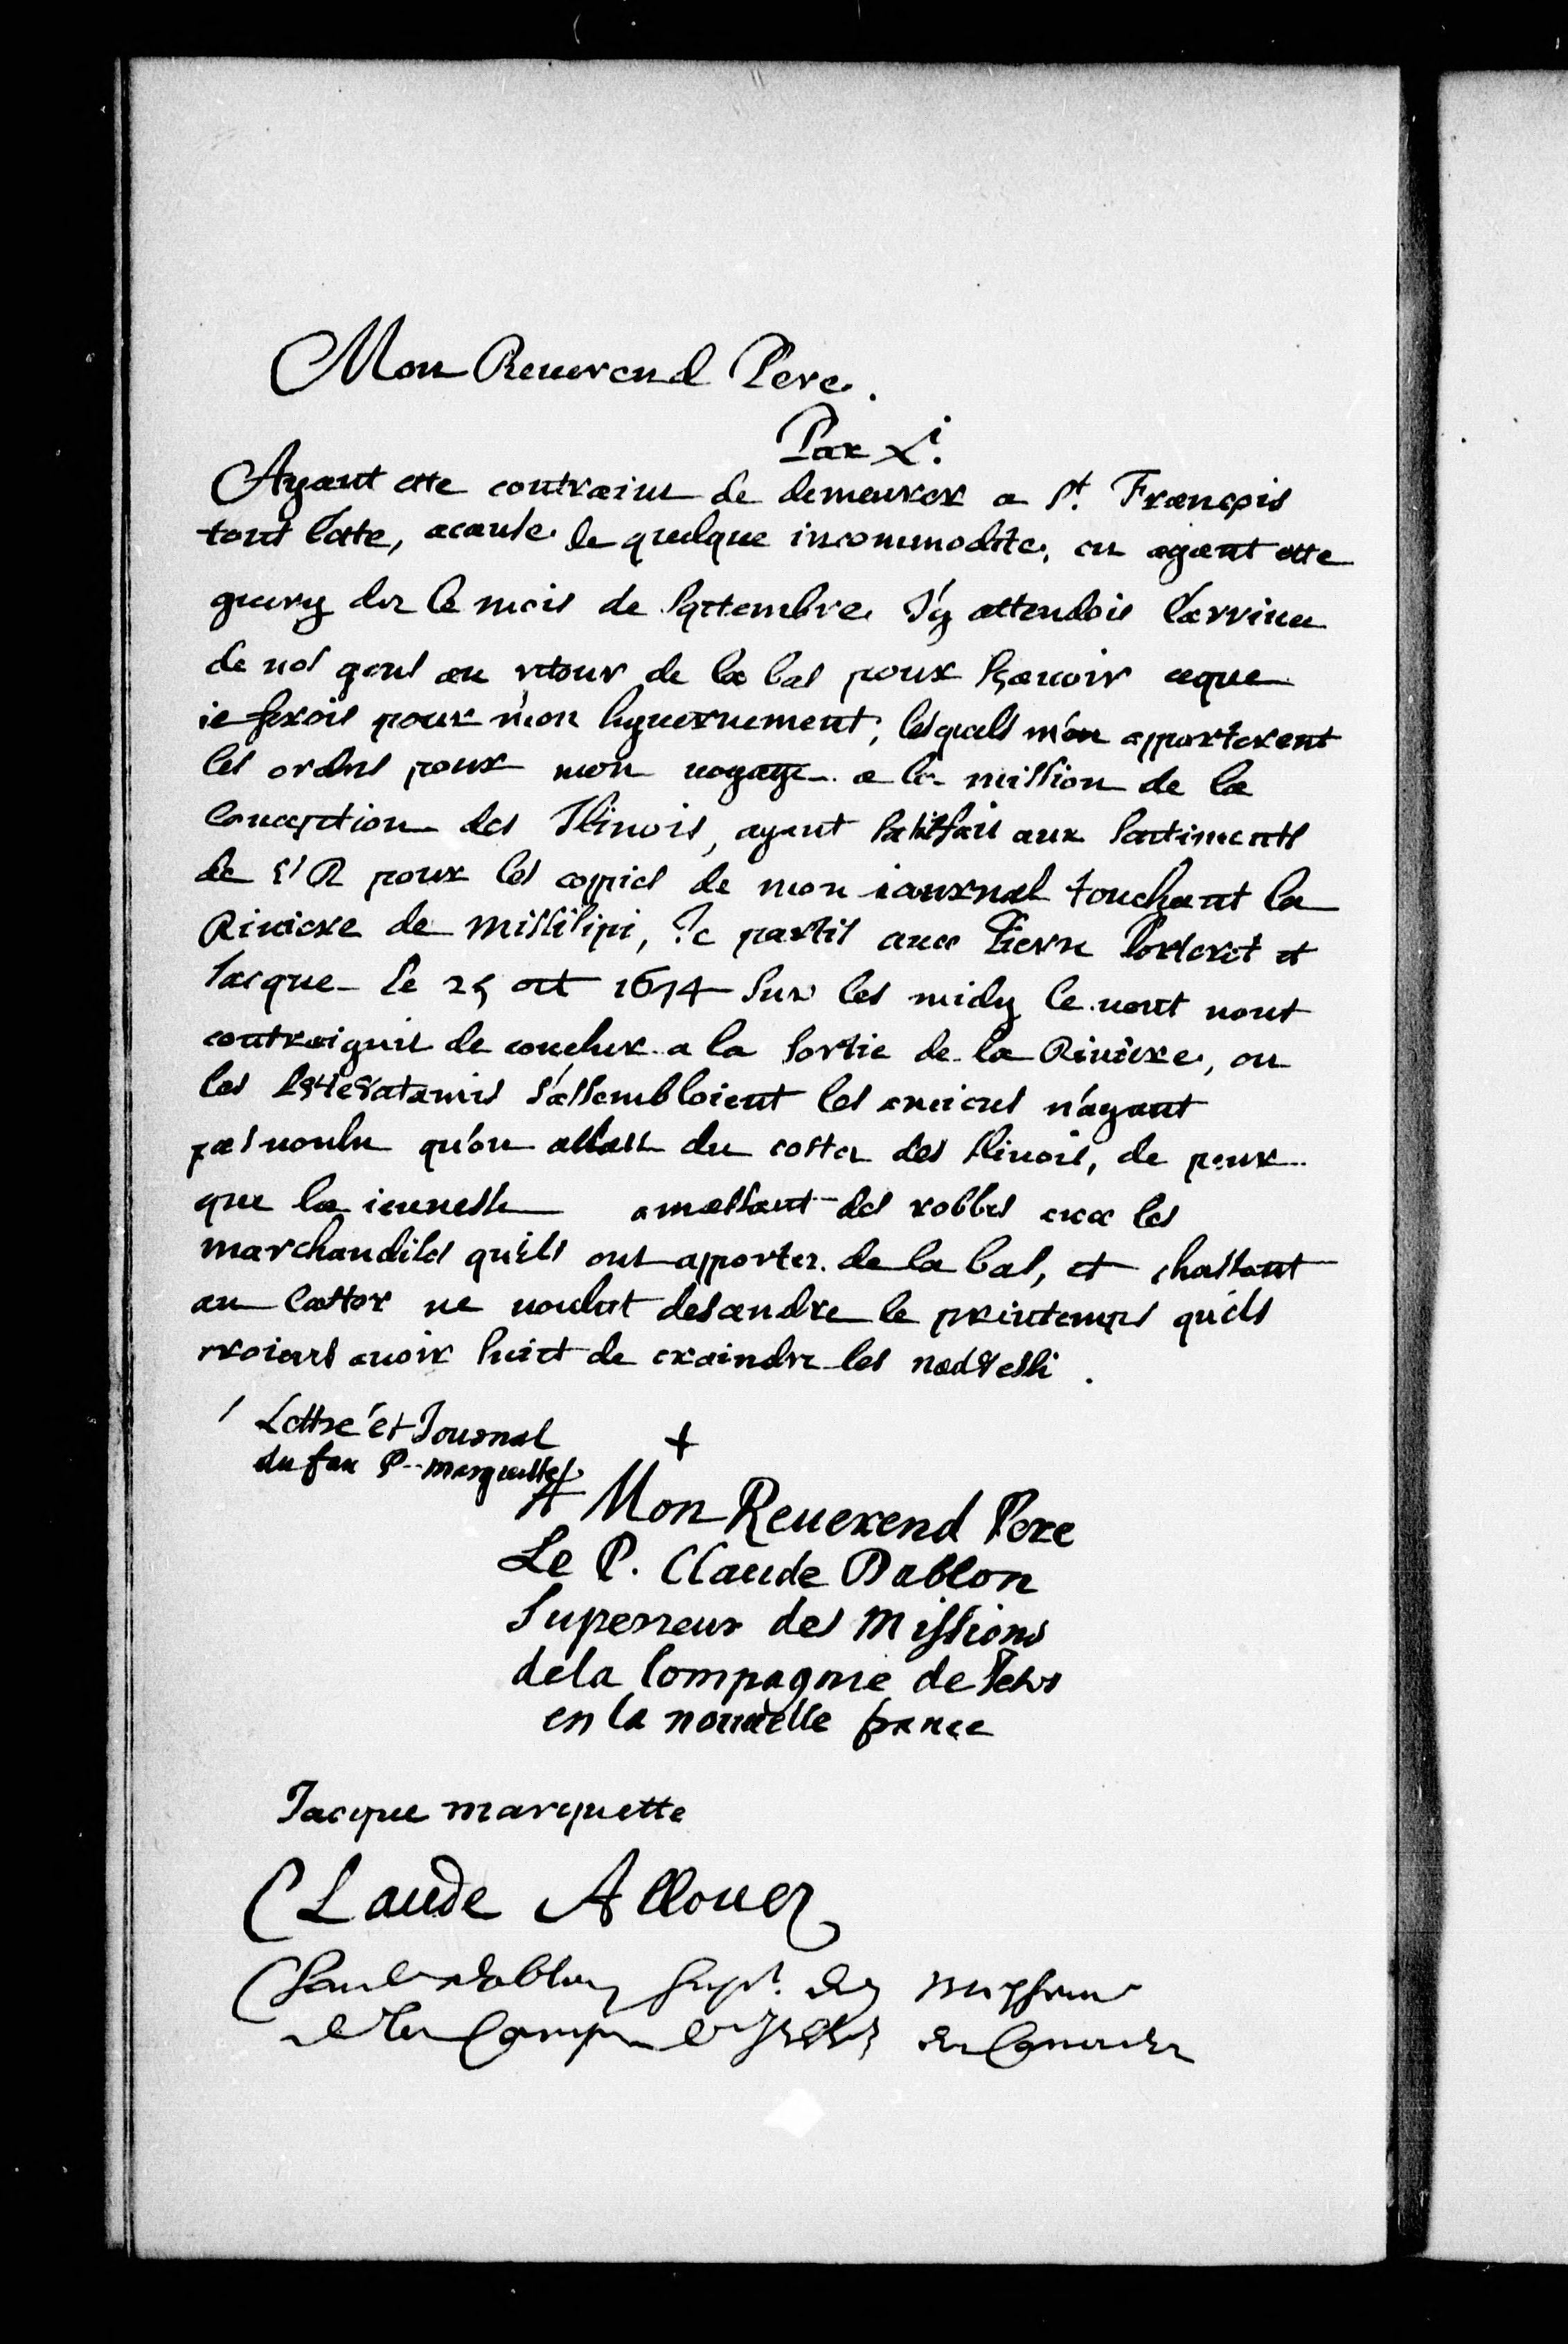 Mon Reuerend Pere.
Pax Xi.
Ayant este contraint de demeurer a St. François
tout l'este, acause de quelque incommodite, en ayant este
guery dez le mois de septembre J'y attendois l'arriuee
de nos gens au retour de la bas pour sçauoir ceque
ie ferois pour mon hyuernement; lesquels m'en apporterent
les ordres pour mon uoyage a la mission de la
Conception des Ilinois, ayant satisfait aux sentiments
de V R pour les copies de mon iournal touchant la
Riuiere de missisipi, Je partis auec Pierre Porteret et
Jacque le 25 oct 1674 sur les midy le uent nous
contraignit de coucher a la sortie de la Riuiere, ou
les P8te8atamis s'assembloient les anciens n'ayant
pas uoulu qu'on allast du costez des Ilinois, de peur
que la ieunesse amassant des robbes auec les
marchandises qu'ils ont apportez de la bas, et chassant
au Castor ne uoulut descendre le printemps qu'ils
croient auoir suiet de craindre les nad8essi.
Lettre et Journal
du feu P. marquette
+
A Mon Reuerend Pere
Le P. Claude Dablon
Superieur des Missions
dela Compagnie de Jesus
en la nouuelle france
Jacque marquette
CLaude Allouez
Claude dablon Supr. des missions
de la Comp. de Jesus en Canada